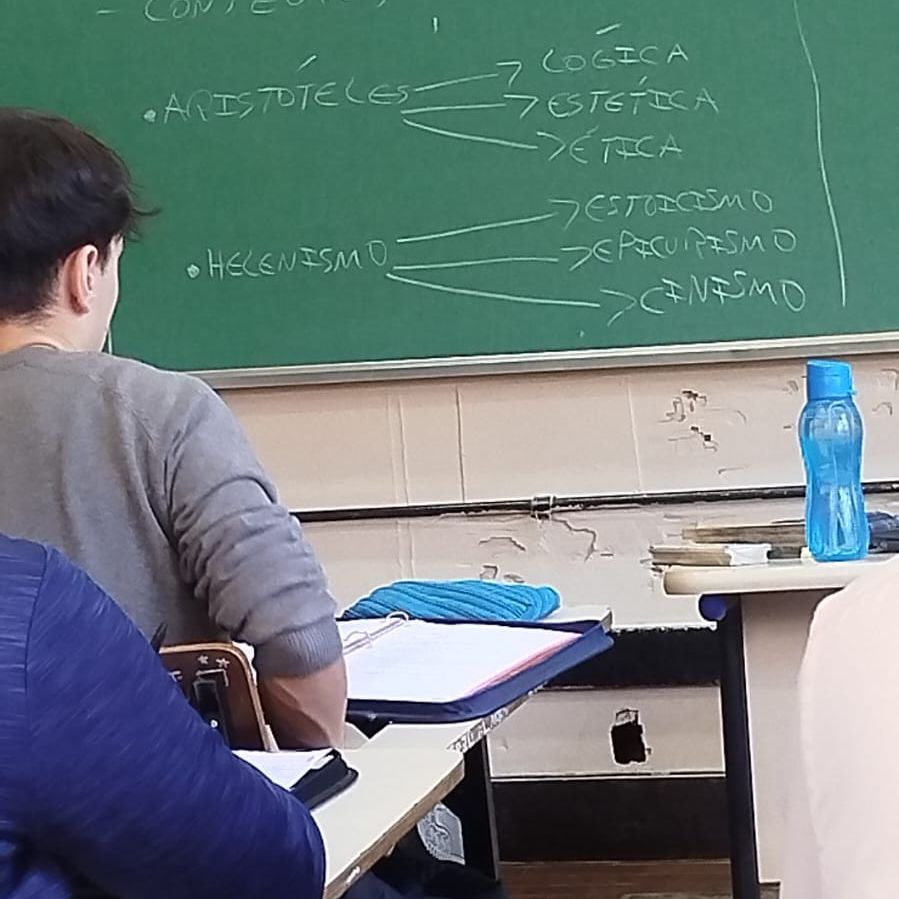 • ARISTÓTELES → LÓGICA
→ ESTÉTICA
→ ÉTICA
• HELENISMO → ESTOICISMO
→ EPICURISMO
→ CINISMO